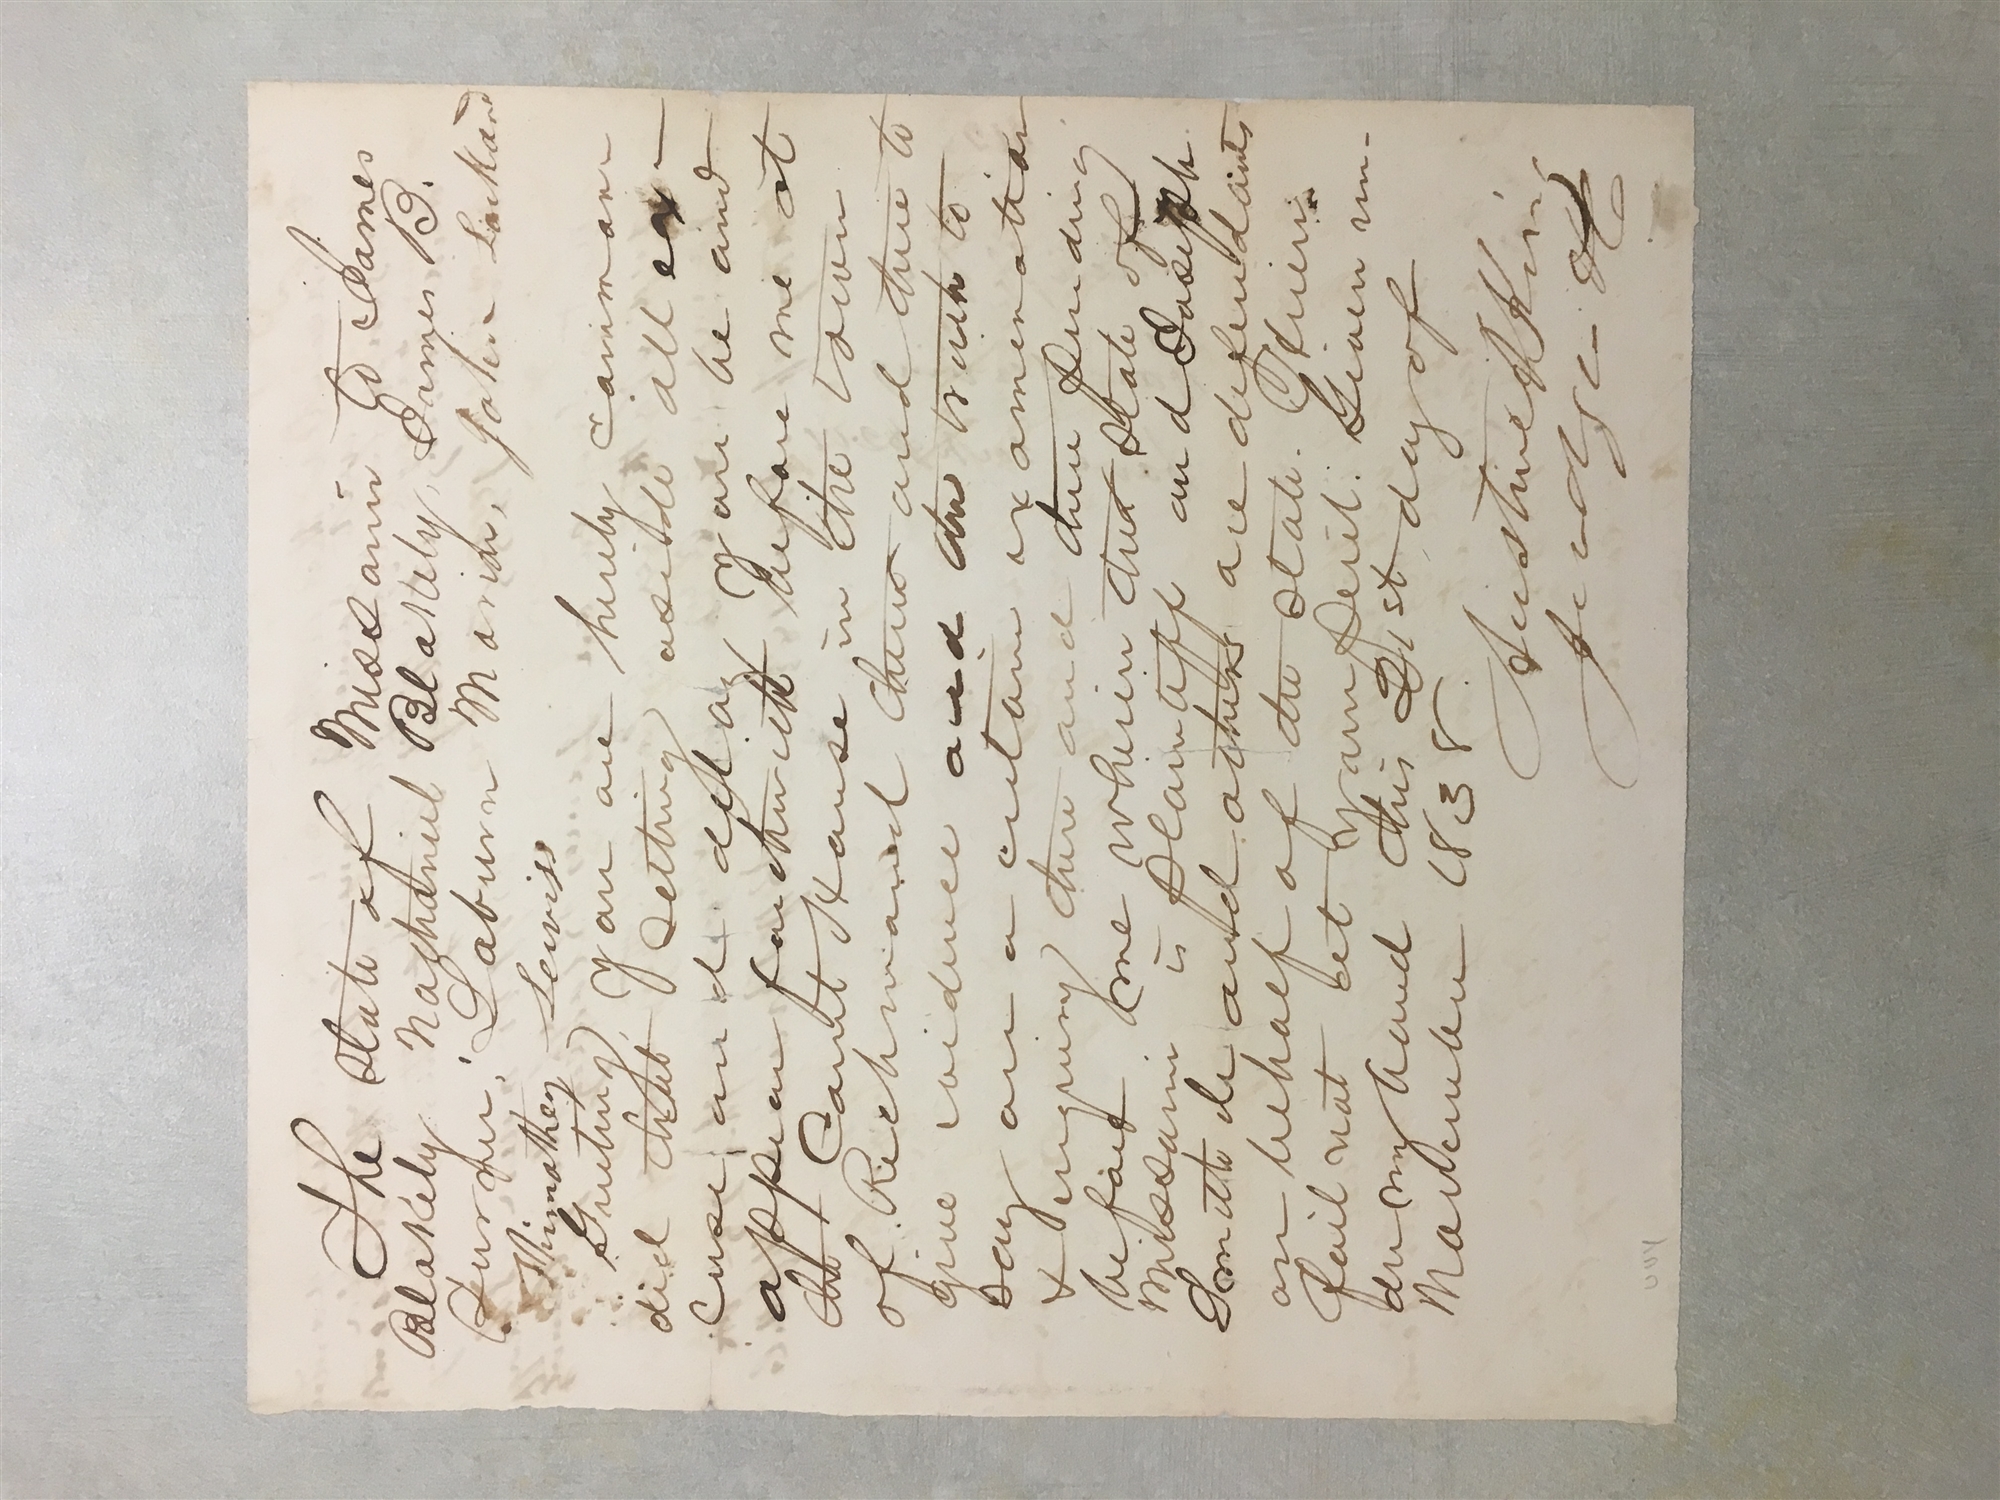 The State of Missouri To James
Blakely Nathaniel Blakely, James B.
Turner, Laburn Morin, John Lockard
Thimothey Lewis
Greeting You are hereby comman
ded that setting aside all ex
cuse and delay You be and
appear forthwith before me at
the Court House in the town
of Richmond then and there to
give evidence and the truth to
say in a certain examination
& enquiry there and then pending
before me wherein the State of
Missouri is Plaintiff and Joseph
Smith Jr and others are defendants
on behalf of the State. Therein
fail not at your peril. Given un-
der my hand this 21st day of
November 1838
Austin A King
Judge &c